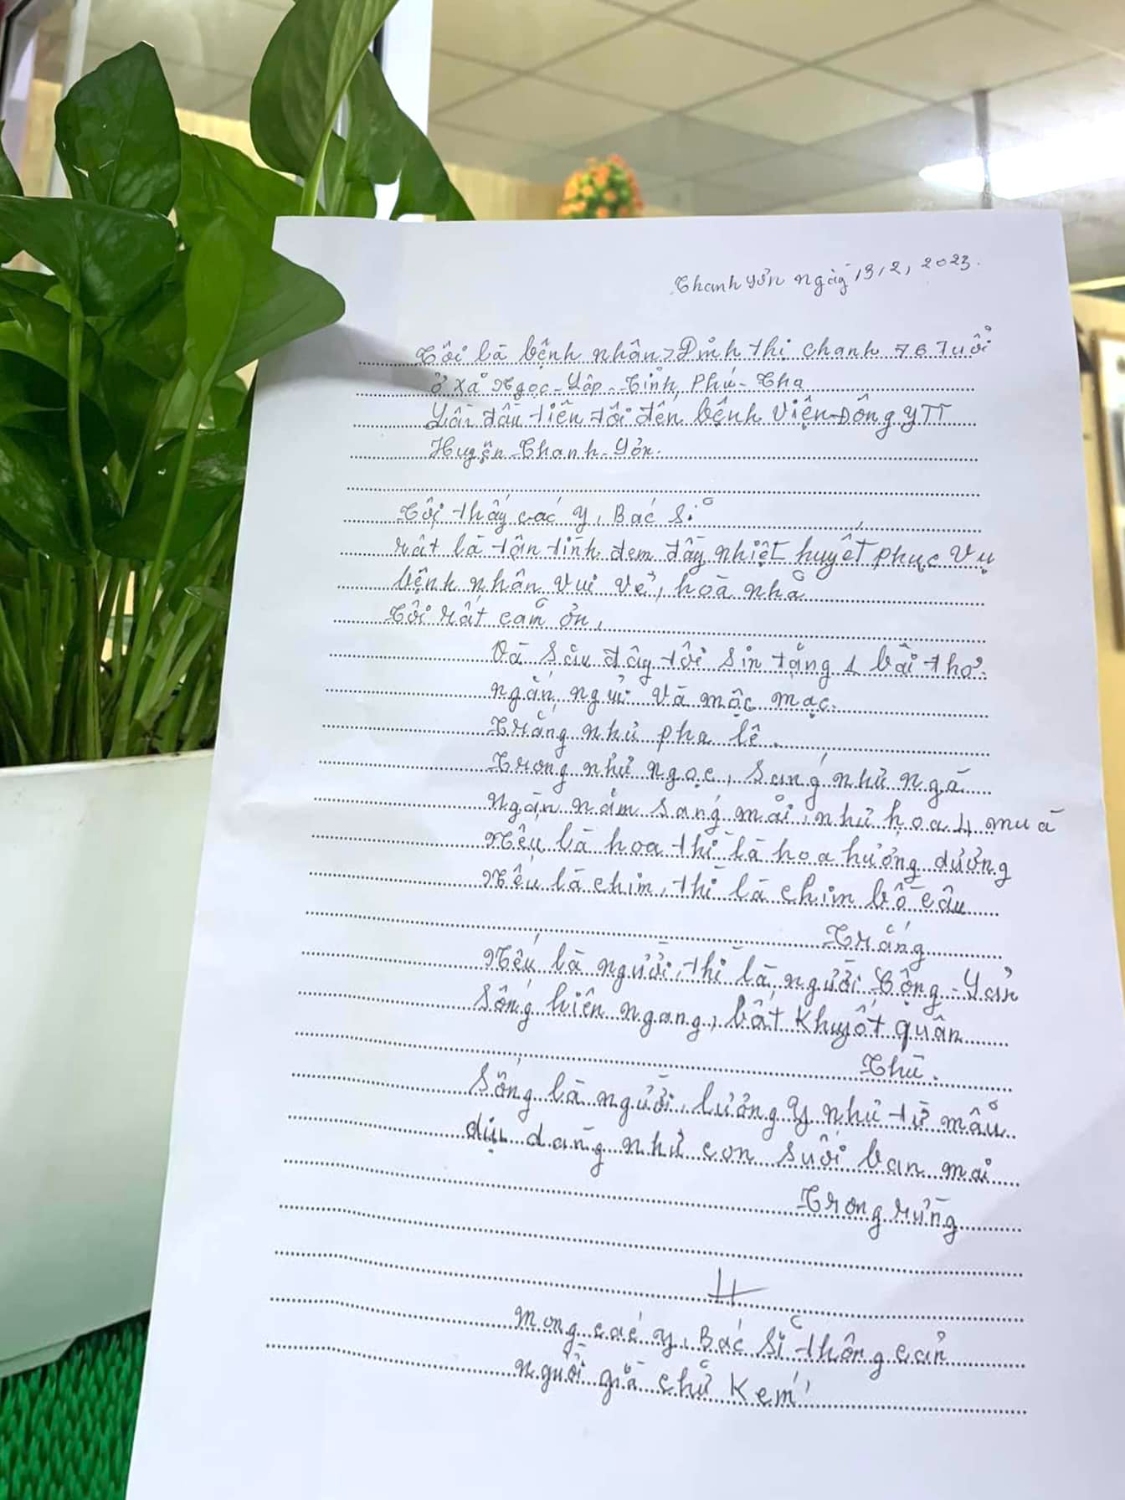 Thanh Yên ngày 13/2, 2023.
Tôi là bệnh nhân, Đinh thi chanh 76 Tuổi
ở xã Ngọc - Lập - Tỉnh Phú - Thọ
Lần đầu tiên tôi đến bệnh viện Đông y TT
Huyện Thanh - Yên.
Tôi thấy các y, Bác Sĩ
rất là tận tình đem đầy nhiệt huyết phục vụ
bệnh nhân vui vẻ, hoà nhã
Tôi rất cảm ơn,
Và sau đây tôi sin tặng 1 bài thơ.
ngắn ngủi và mộc mạc.
Trắng như pha lê.
Trong như ngọc, sáng như ngà
Ngàn năm sáng mãi, như hoa 4 mùa
Nếu là hoa thì là hoa hướng dương
Nếu là chim, thì là chim bồ câu
Trắng
Nếu là người, thì là người Cộng - Sản
Sống hiên ngang, bất khuyất quân
Thù.
Sống là người, lương y như từ mẫu
dịu dàng như con suối ban mai
Trong rừng
H
mong các y, Bác Sĩ thông cản
người già chữ kém